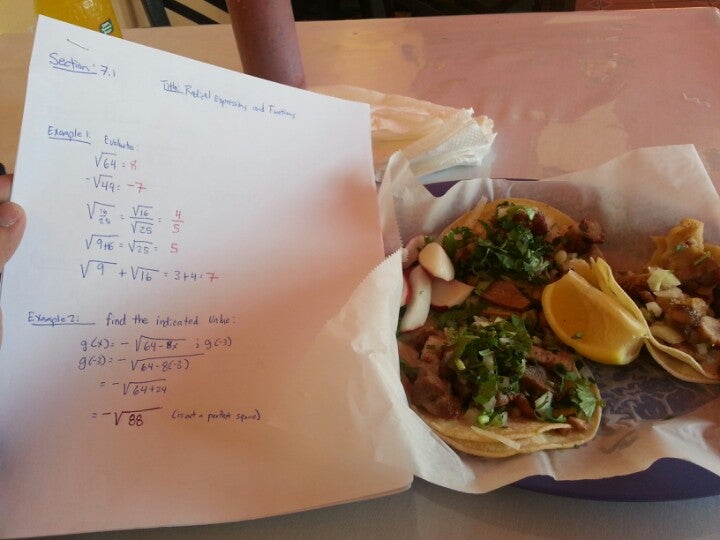 Section: 7.1
Title: Radical Expressions and Functions
Example 1: Evaluate:
√64 = 8
-√49 = -7
√16/25 = √16/√25 = 4/5
√9+16 = √25 = 5
√9 + √16 = 3+4 = 7
Example 2: find the indicated value:
g(x) = -√64-8x ; g(-3)
g(-3) = -√64-8(-3)
= -√64+24
= -√88 (is not a perfect square)